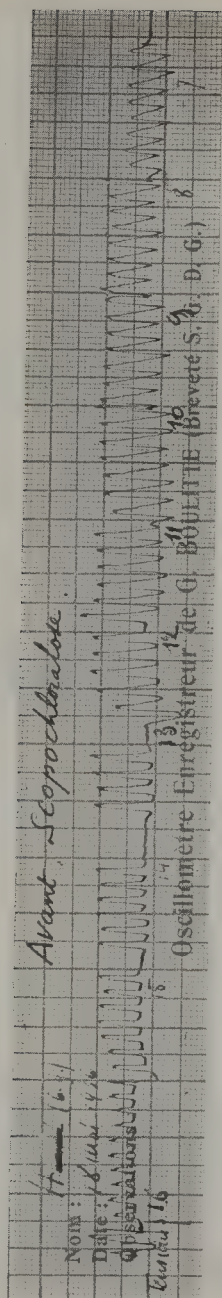 Avant Scopochloralose.
Nom : H
Date : 18 Mai
Observations
Tension 16 15 14 13 12 11 10 9 8 7
Oscillomètre Enregistreur de G. BOULITTE (Breveté S. G. D. G.)